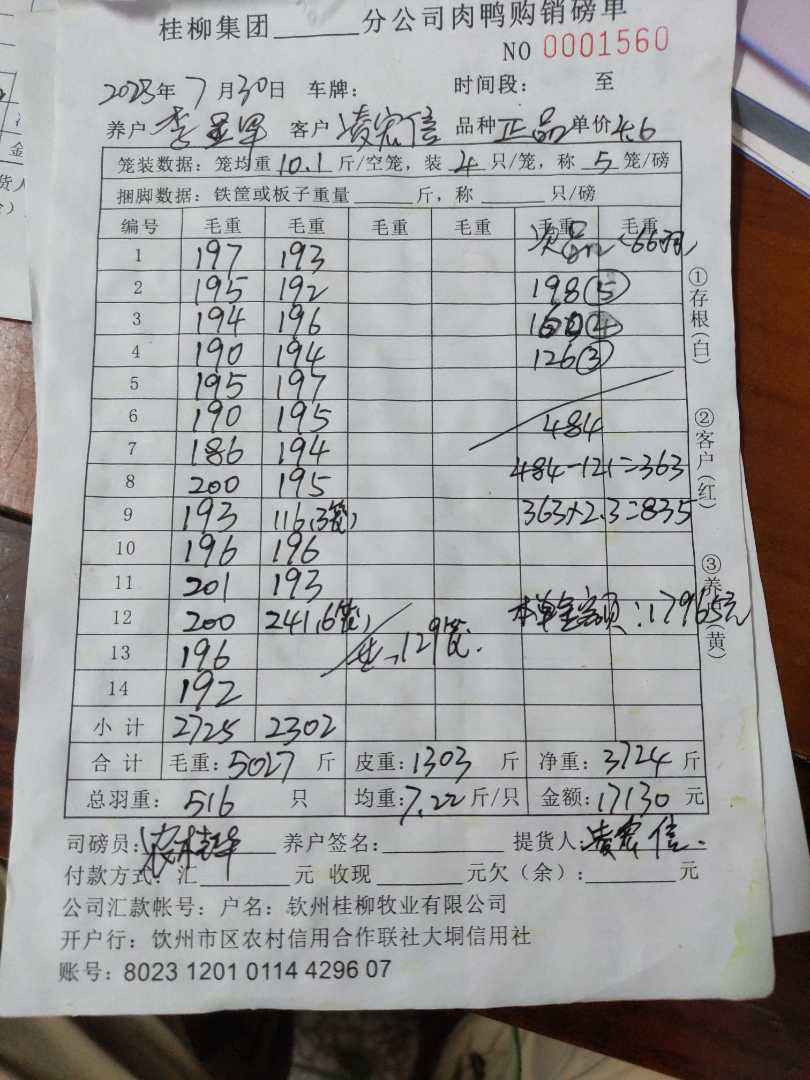 桂柳集团______分公司肉鸭购销磅单
NO 0001560
2023年7月30日 车牌： 时间段： 至
养户 客户 凌宏信 品种 正品 单价 4.6
笼装数据：笼均重 10.1 斤/空笼，装 4 只/笼，称 5 笼/磅
捆脚数据：铁筐或板子重量______斤，称______只/磅
编号 毛重 毛重 毛重 毛重 毛重 毛重
次品 66羽
1 197 193
2 195 192 198⑤
3 194 196 160④
4 190 194 126③
5 195 197
6 190 195 484
7 186 194 484-121=363
8 200 195
9 193 116(3笼) 363×2.3=835
10 196 196
11 201 193
12 200 241(6笼) 本单金额：17965元
13 196 129笼
14 192
小计 2725 2302
合计 毛重：5027斤 皮重：1303斤 净重：3724斤
总羽重：516只 均重：7.22斤/只 金额：17130元
司磅员： 养户签名：______ 提货人：凌宏信
付款方式：汇______元 收现______元欠（余）：______元
公司汇款帐号：户名：钦州桂柳牧业有限公司
开户行：饮州市区农村信用合作联社大垌信用社
账号：8023 1201 0114 4296 07
①存根(白)
②客户(红)
③养(黄)